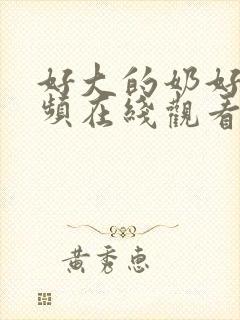 好大的奶好
頻在綫觀看
黄秀惠